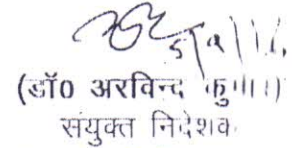 (डॉ0 अरविन्द कुमार)
संयुक्त निदेशक